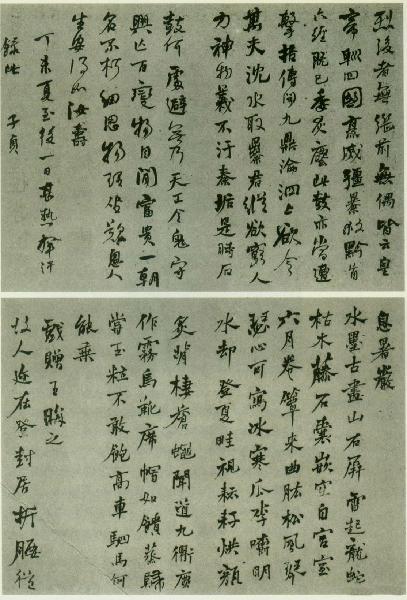 烈後者無繼前無偶皆云皇
帝巡四國烹滅彊暴救黔首
六經既已委灰塵此鼓亦當遭
擊掊傳聞九鼎淪泗上欲令
萬夫沈水取暴君縱欲窮人
力神物義不汙秦垢是時石
鼓何處避無乃天工令鬼守
興亡百變物自閒富貴一朝
名不朽細思物理坐歎息人
生安得如汝壽
丁未夏至後一日甚熱揮汗
錄此 子貞
息暑巖
水墨古畫山石屏雷起龍蛇
枯木藤石囊嵌空自宮室
六月卷簟來曲肱松風琴
瑟心可寫冰寒瓜李嚼明
水却登夏畦視耘耔烘顏
炙背棲蒼蠅聞道九衢塵
作霧烏靴席帽如饋蒸歸
嘗玉粒不敢飽高車駟馬何
能乘
戲贈王晦之
故人近在登封居折腰從